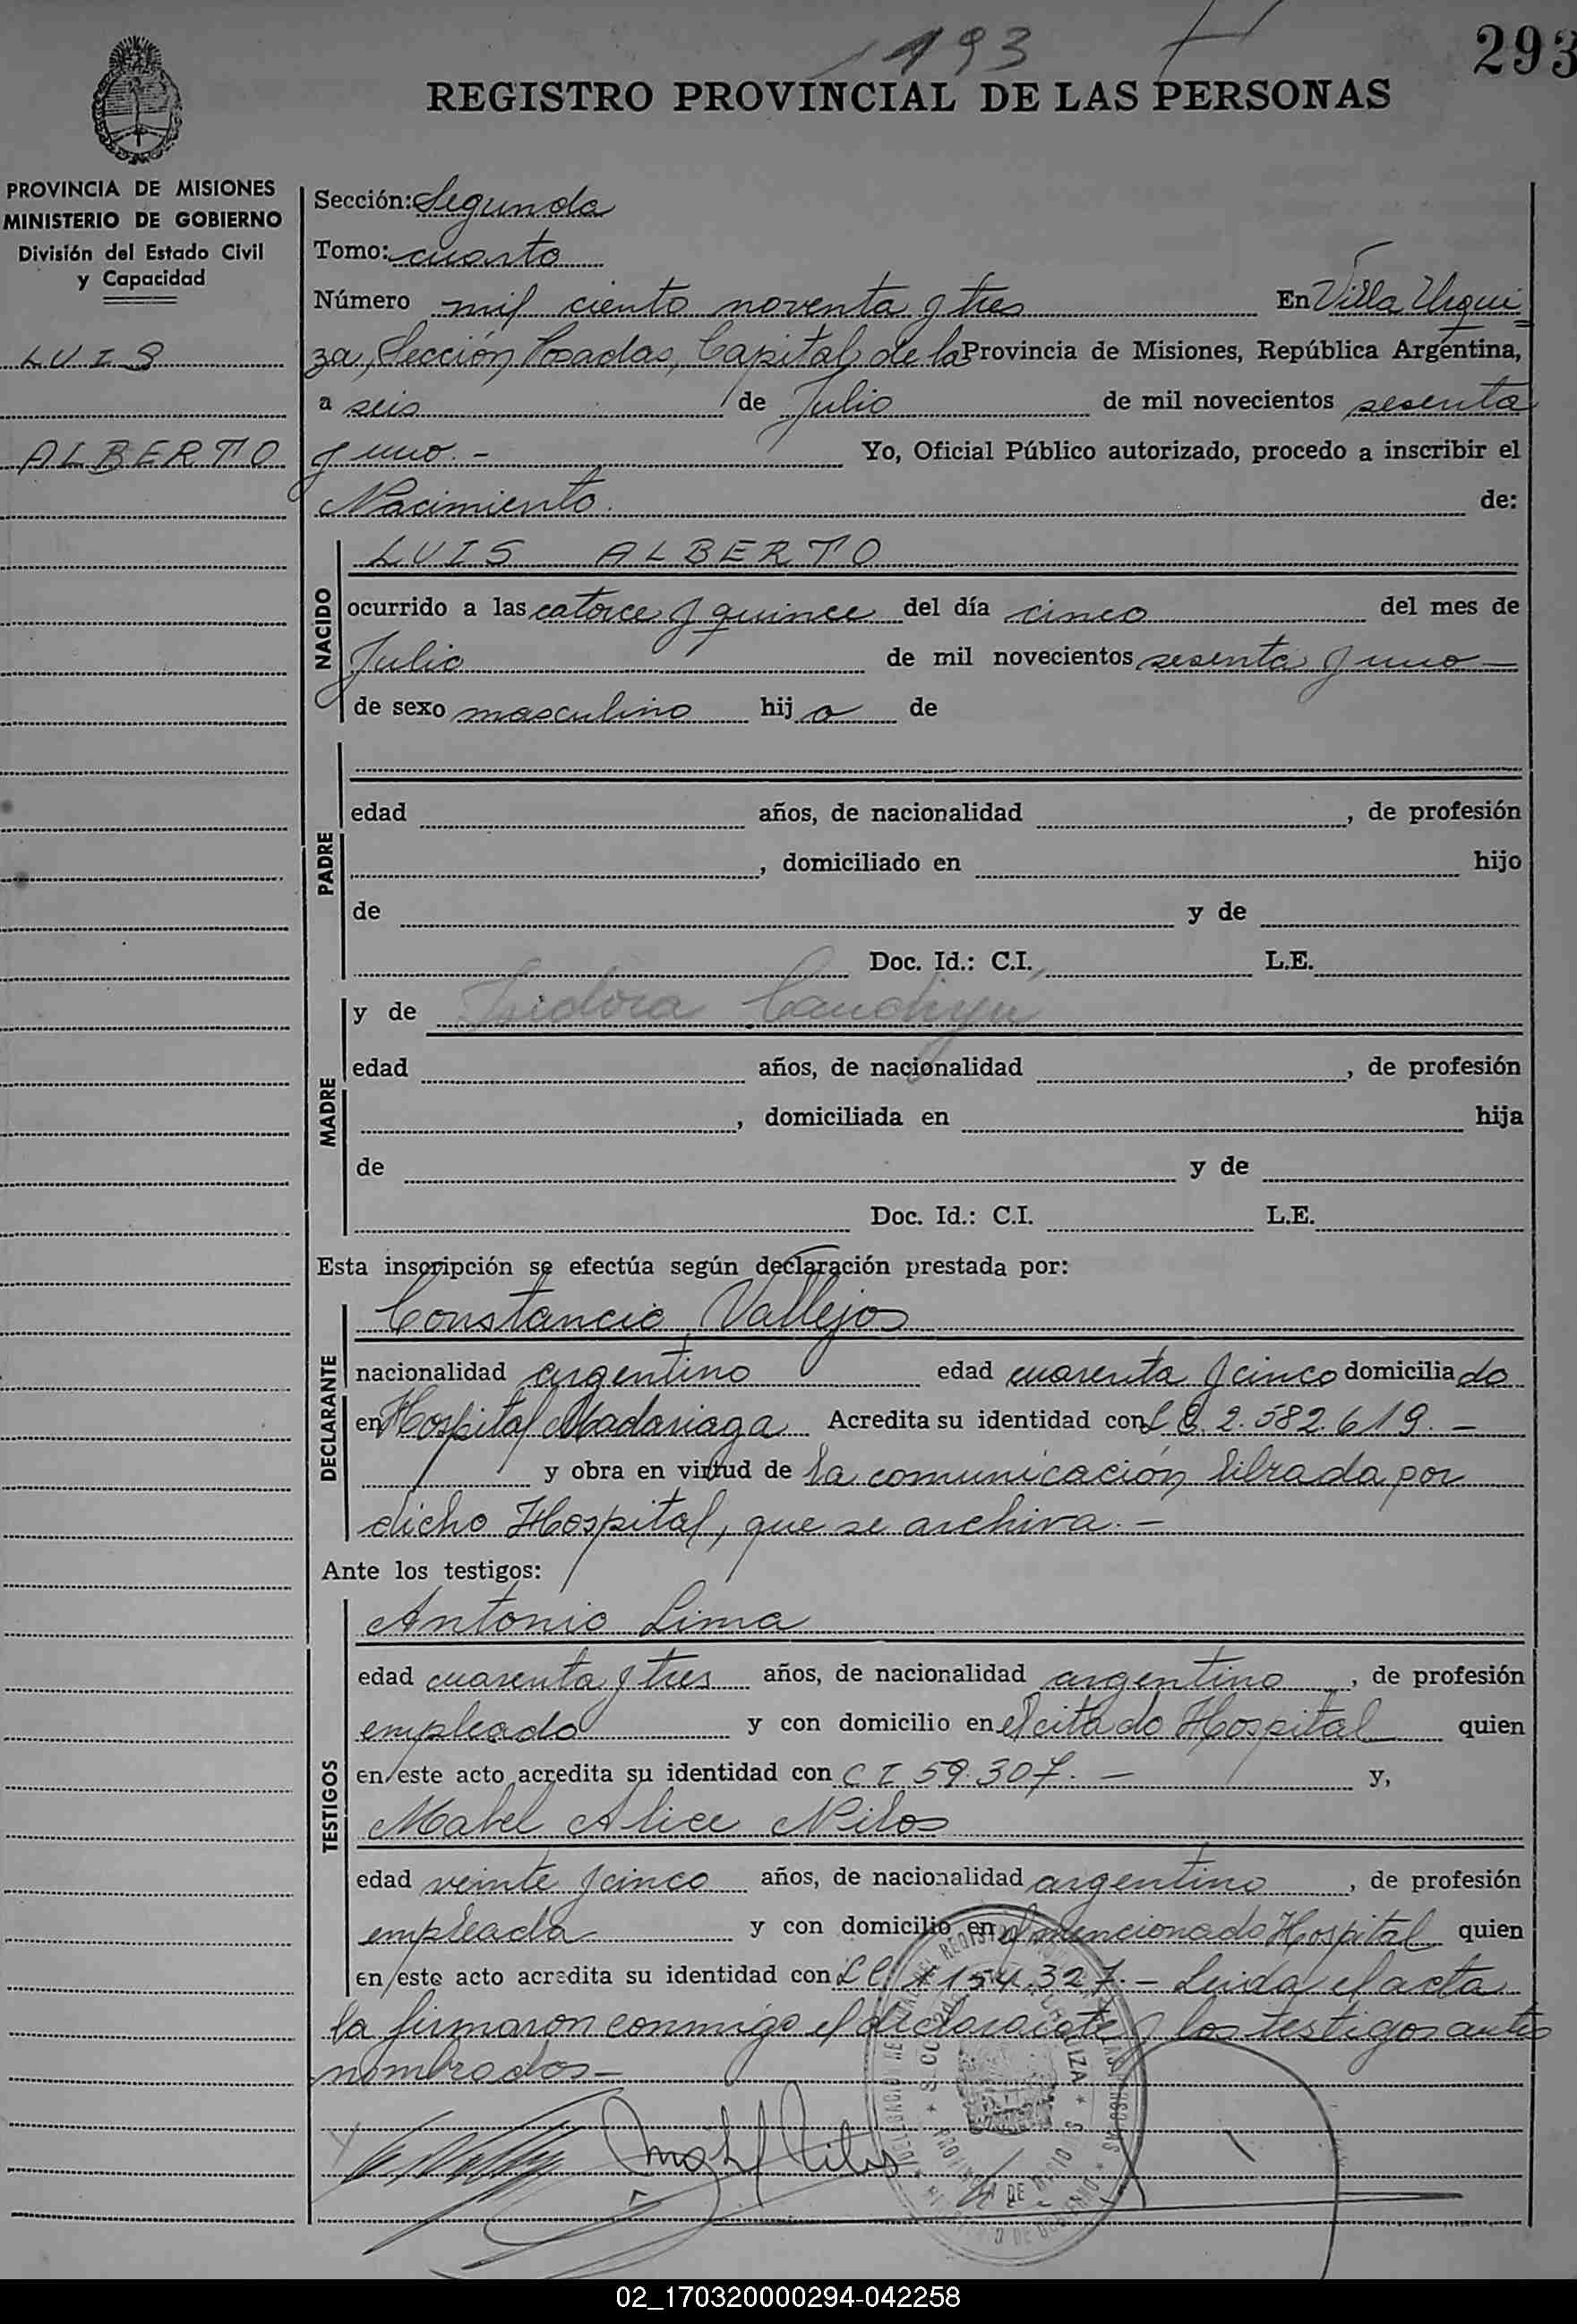 1193
293
REGISTRO PROVINCIAL DE LAS PERSONAS
PROVINCIA DE MISIONES
MINISTERIO DE GOBIERNO
División del Estado Civil
y Capacidad
LUIS
ALBERTO
Sección: Segunda
Tomo: cuarto
Número mil ciento noventa y tres En Villa Urqui
za, Sección Posadas, Capital de la Provincia de Misiones, República Argentina,
a seis de Julio de mil novecientos sesenta
y uno.- Yo, Oficial Público autorizado, procedo a inscribir el
Nacimiento de:
NACIDO
LUIS ALBERTO
ocurrido a las catorce y quince del día cinco del mes de
Julio de mil novecientos sesenta y uno-
de sexo masculino hijo de
PADRE
edad años, de nacionalidad , de profesión
, domiciliado en hijo
de y de
Doc. Id.: C.I. L.E.
MADRE
y de Isidora
edad años, de nacionalidad , de profesión
, domiciliada en hija
de y de
Doc. Id.: C.I. L.E.
Esta inscripción se efectúa según declaración prestada por:
DECLARANTE
Constancio Vallejos
nacionalidad argentino edad cuarenta y cinco domiciliado
en Hospital Madariaga Acredita su identidad con L E. 2.582.619.-
y obra en virtud de la comunicación librada por
dicho Hospital, que se archiva.-
Ante los testigos:
TESTIGOS
Antonio Lima
edad cuarenta y tres años, de nacionalidad argentino , de profesión
empleado y con domicilio en el citado Hospital quien
en este acto acredita su identidad con C I 59.307.- y,
Mabel Alice Nilos
edad veinte y cinco años, de nacionalidad argentino , de profesión
empleada y con domicilio en el mencionado Hospital quien
en este acto acredita su identidad con L C. 1.154.327.- Leida el acta
la firmaron conmigo el declarante y los testigos antes
nombrados-
02_170320000294-042258